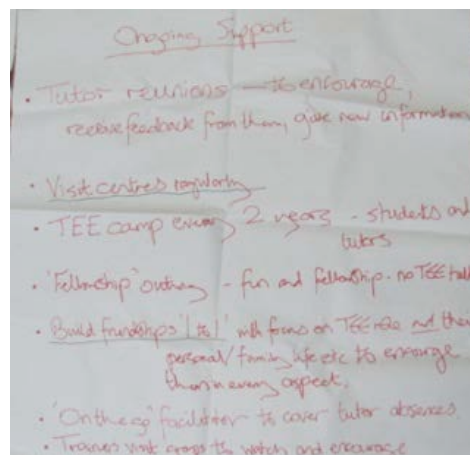 Ongoing Support
• Tutor reunions — to encourage,
receive feedback from them, give new information
• Visit centres regularly
• TEE camp every 2 years - students and
tutors
• 'Fellowship' outing - fun and fellowship - no TEE talk
• Build friendships '1 to 1' with focus on TEE role not their
personal/family life etc to encourage
them in every aspect.
• 'On the go' facilitator to cover tutor absences.
• Trainers visit groups to watch and encourage